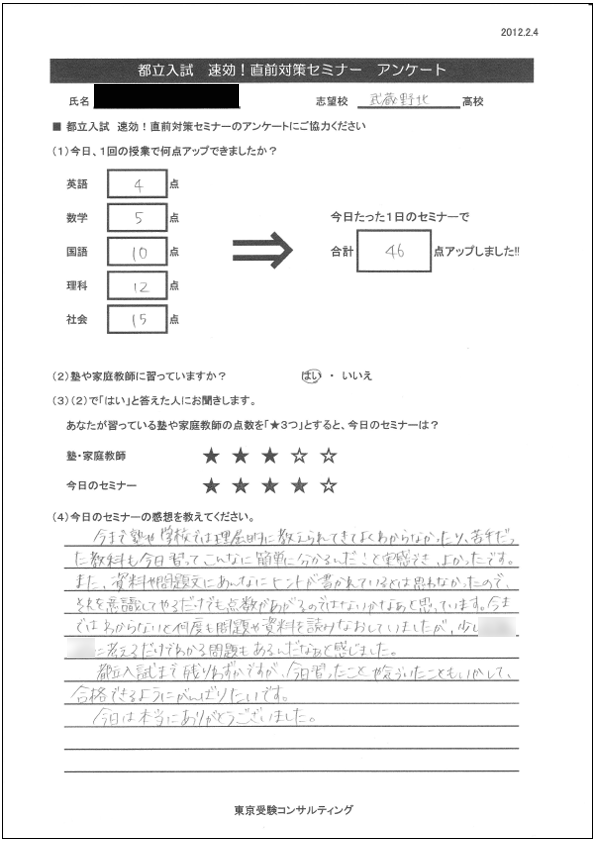 2012.2.4
都立入試 速効！直前対策セミナー アンケート
氏名 志望校 武蔵野北 高校
■ 都立入試 速効！直前対策セミナーのアンケートにご協力ください
(1)今日、1回の授業で何点アップできましたか？
英語 4 点
数学 5 点
国語 10 点
理科 12 点
社会 15 点
今日たった1日のセミナーで
合計 46 点アップしました!!
(2)塾や家庭教師に習っていますか？ はい ・ いいえ
(3)(2)で「はい」と答えた人にお聞きします。
あなたが習っている塾や家庭教師の点数を「★3つ」とすると、今日のセミナーは？
塾・家庭教師 ★ ★ ★ ☆ ☆
今日のセミナー ★ ★ ★ ★ ☆
(4)今日のセミナーの感想を教えてください。
今まで塾や学校では理屈的に教えられてきてよくわからなかったり、苦手だっ
た教科も今日習ってこんなに簡単に分かるんだ！と実感でき、よかったです。
また、資料や問題文にあんなにヒントが書かれているとは思わなかったので、
それを意識してやるだけでも点数があがるのではないかなあと思っています。今ま
ではわからないと何度も問題や資料を読みなおしていましたが、少し
に考えるだけでわかる問題もあるんだなぁと感じました。
都立入試まで残りわずかですが、今日習ったことや気づいたこともいかして、
合格できるようにがんばりたいです。
今日は本当にありがとうございました。
東京受験コンサルティング